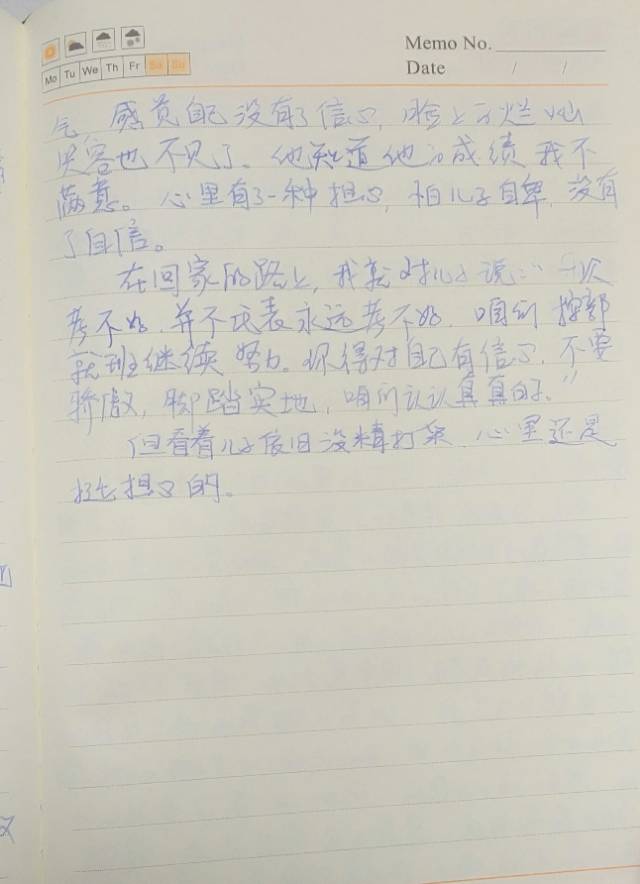 Memo No.
Mo Tu We Th Fr Sa Su
Date / /
气 感觉自己没有了信心, 脸上了烂灿
笑容也不见了。他知道他的成绩我不
满意。心里有了一种担心, 怕儿子自卑, 没有
了自信。
在回家的路上, 我就对儿子说:“一次
考不好, 并不代表永远考不好, 咱们按部
就班继续努力。你得对自己有信心, 不要
骄傲, 脚踏实地, 咱们认认真真的。”
但看着儿子依旧没精打采, 心里还是
挺担心的。